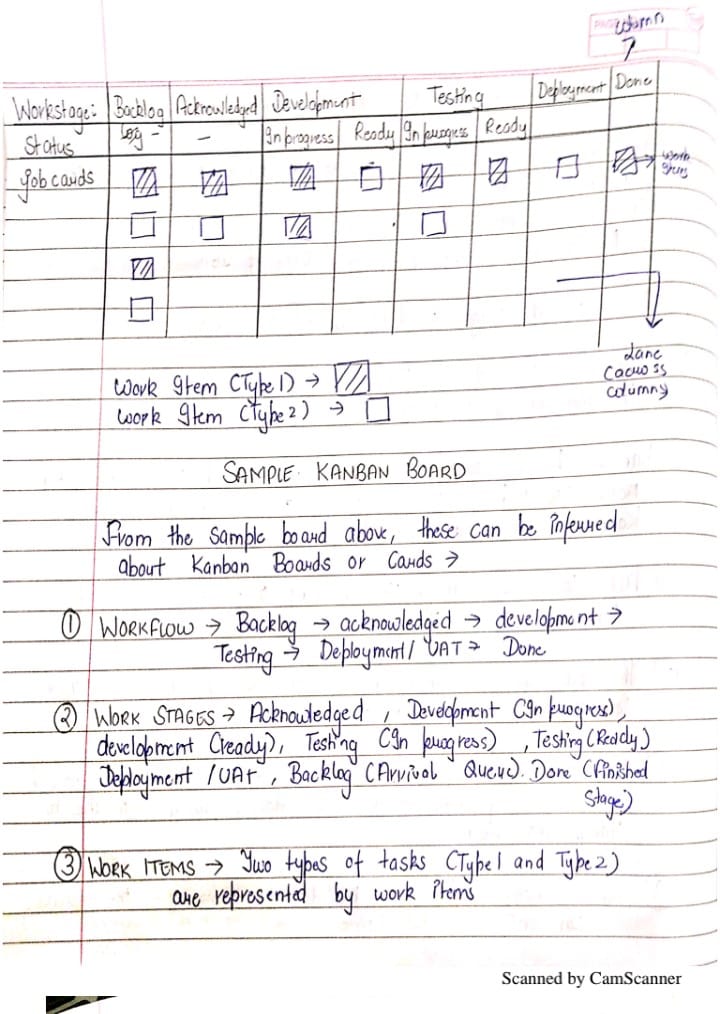 column
7
Workstage: Backlog Acknowledged Development Testing Deployment Done
Status - - In progress Ready In progress Ready
Job cards
work
Lane
across
columns
Work Item (Type 1) →
Work Item (Type 2) →
SAMPLE KANBAN BOARD
From the sample board above, these can be inferred
about Kanban Boards or Cards →
① WORKFLOW → Backlog → acknowledged → development →
Testing → Deployment / UAT → Done
② WORK STAGES → Acknowledged , Development (In progress),
development (ready), Testing (In progress) , Testing (Ready)
Deployment / UAT , Backlog (Arrival Queue). Done (Finished
Stage)
③ WORK ITEMS → Two types of tasks (Type 1 and Type 2)
are represented by work items
Scanned by CamScanner